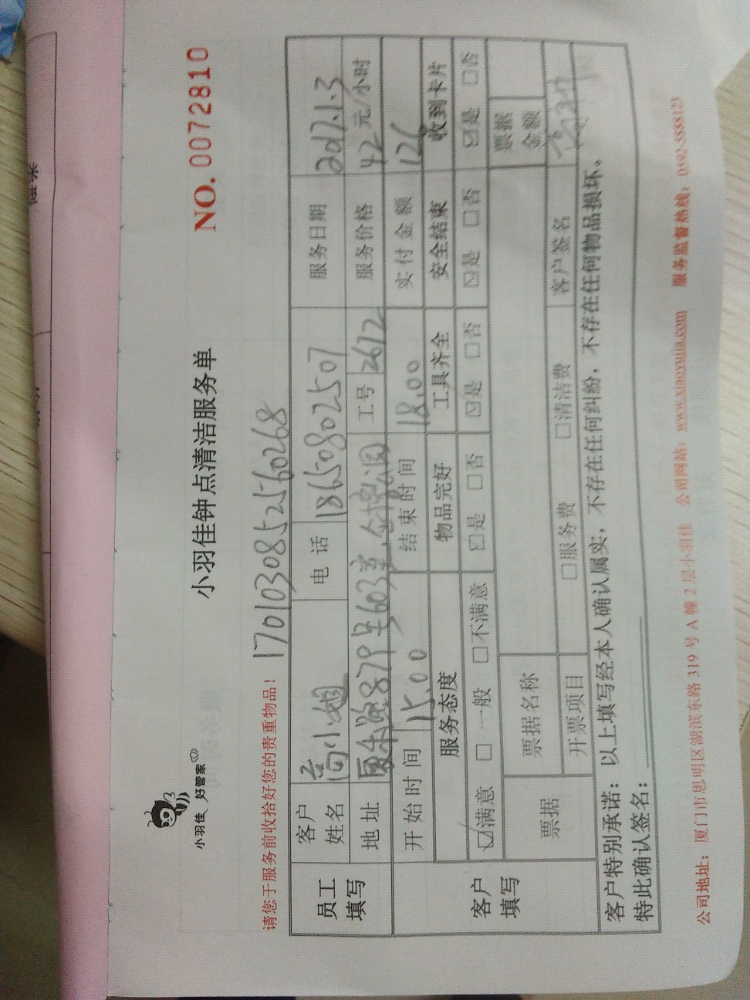 小羽佳 好管家
小羽佳钟点清洁服务单
NO. 0072810
请您于服务前收拾好您的贵重物品!
1701030852560268
员工填写
客户姓名 高小姐 电话 18650802507 服务日期 2017.1.3
地址 879号603室 工号 2612 服务价格 42 元/小时
开始时间 15.00 结束时间 18.00 实付金额 126
客户填写
服务态度 物品完好 工具齐全 安全结束 收到卡片
☑满意 □一般 □不满意 ☑是 □否 ☑是 □否 ☑是 □否 ☑是 □否
票据 票据名称 票据金额
开票项目 □服务费 □清洁费 客户签名
客户特别承诺:以上填写经本人确认属实,不存在任何纠纷,不存在任何物品损坏。
特此确认签名:
公司地址:厦门市思明区湖滨东路 319 号 A 幢 2 层小羽佳 公司网站:www.xiaoyujia.com 服务监督热线:0592-5888123